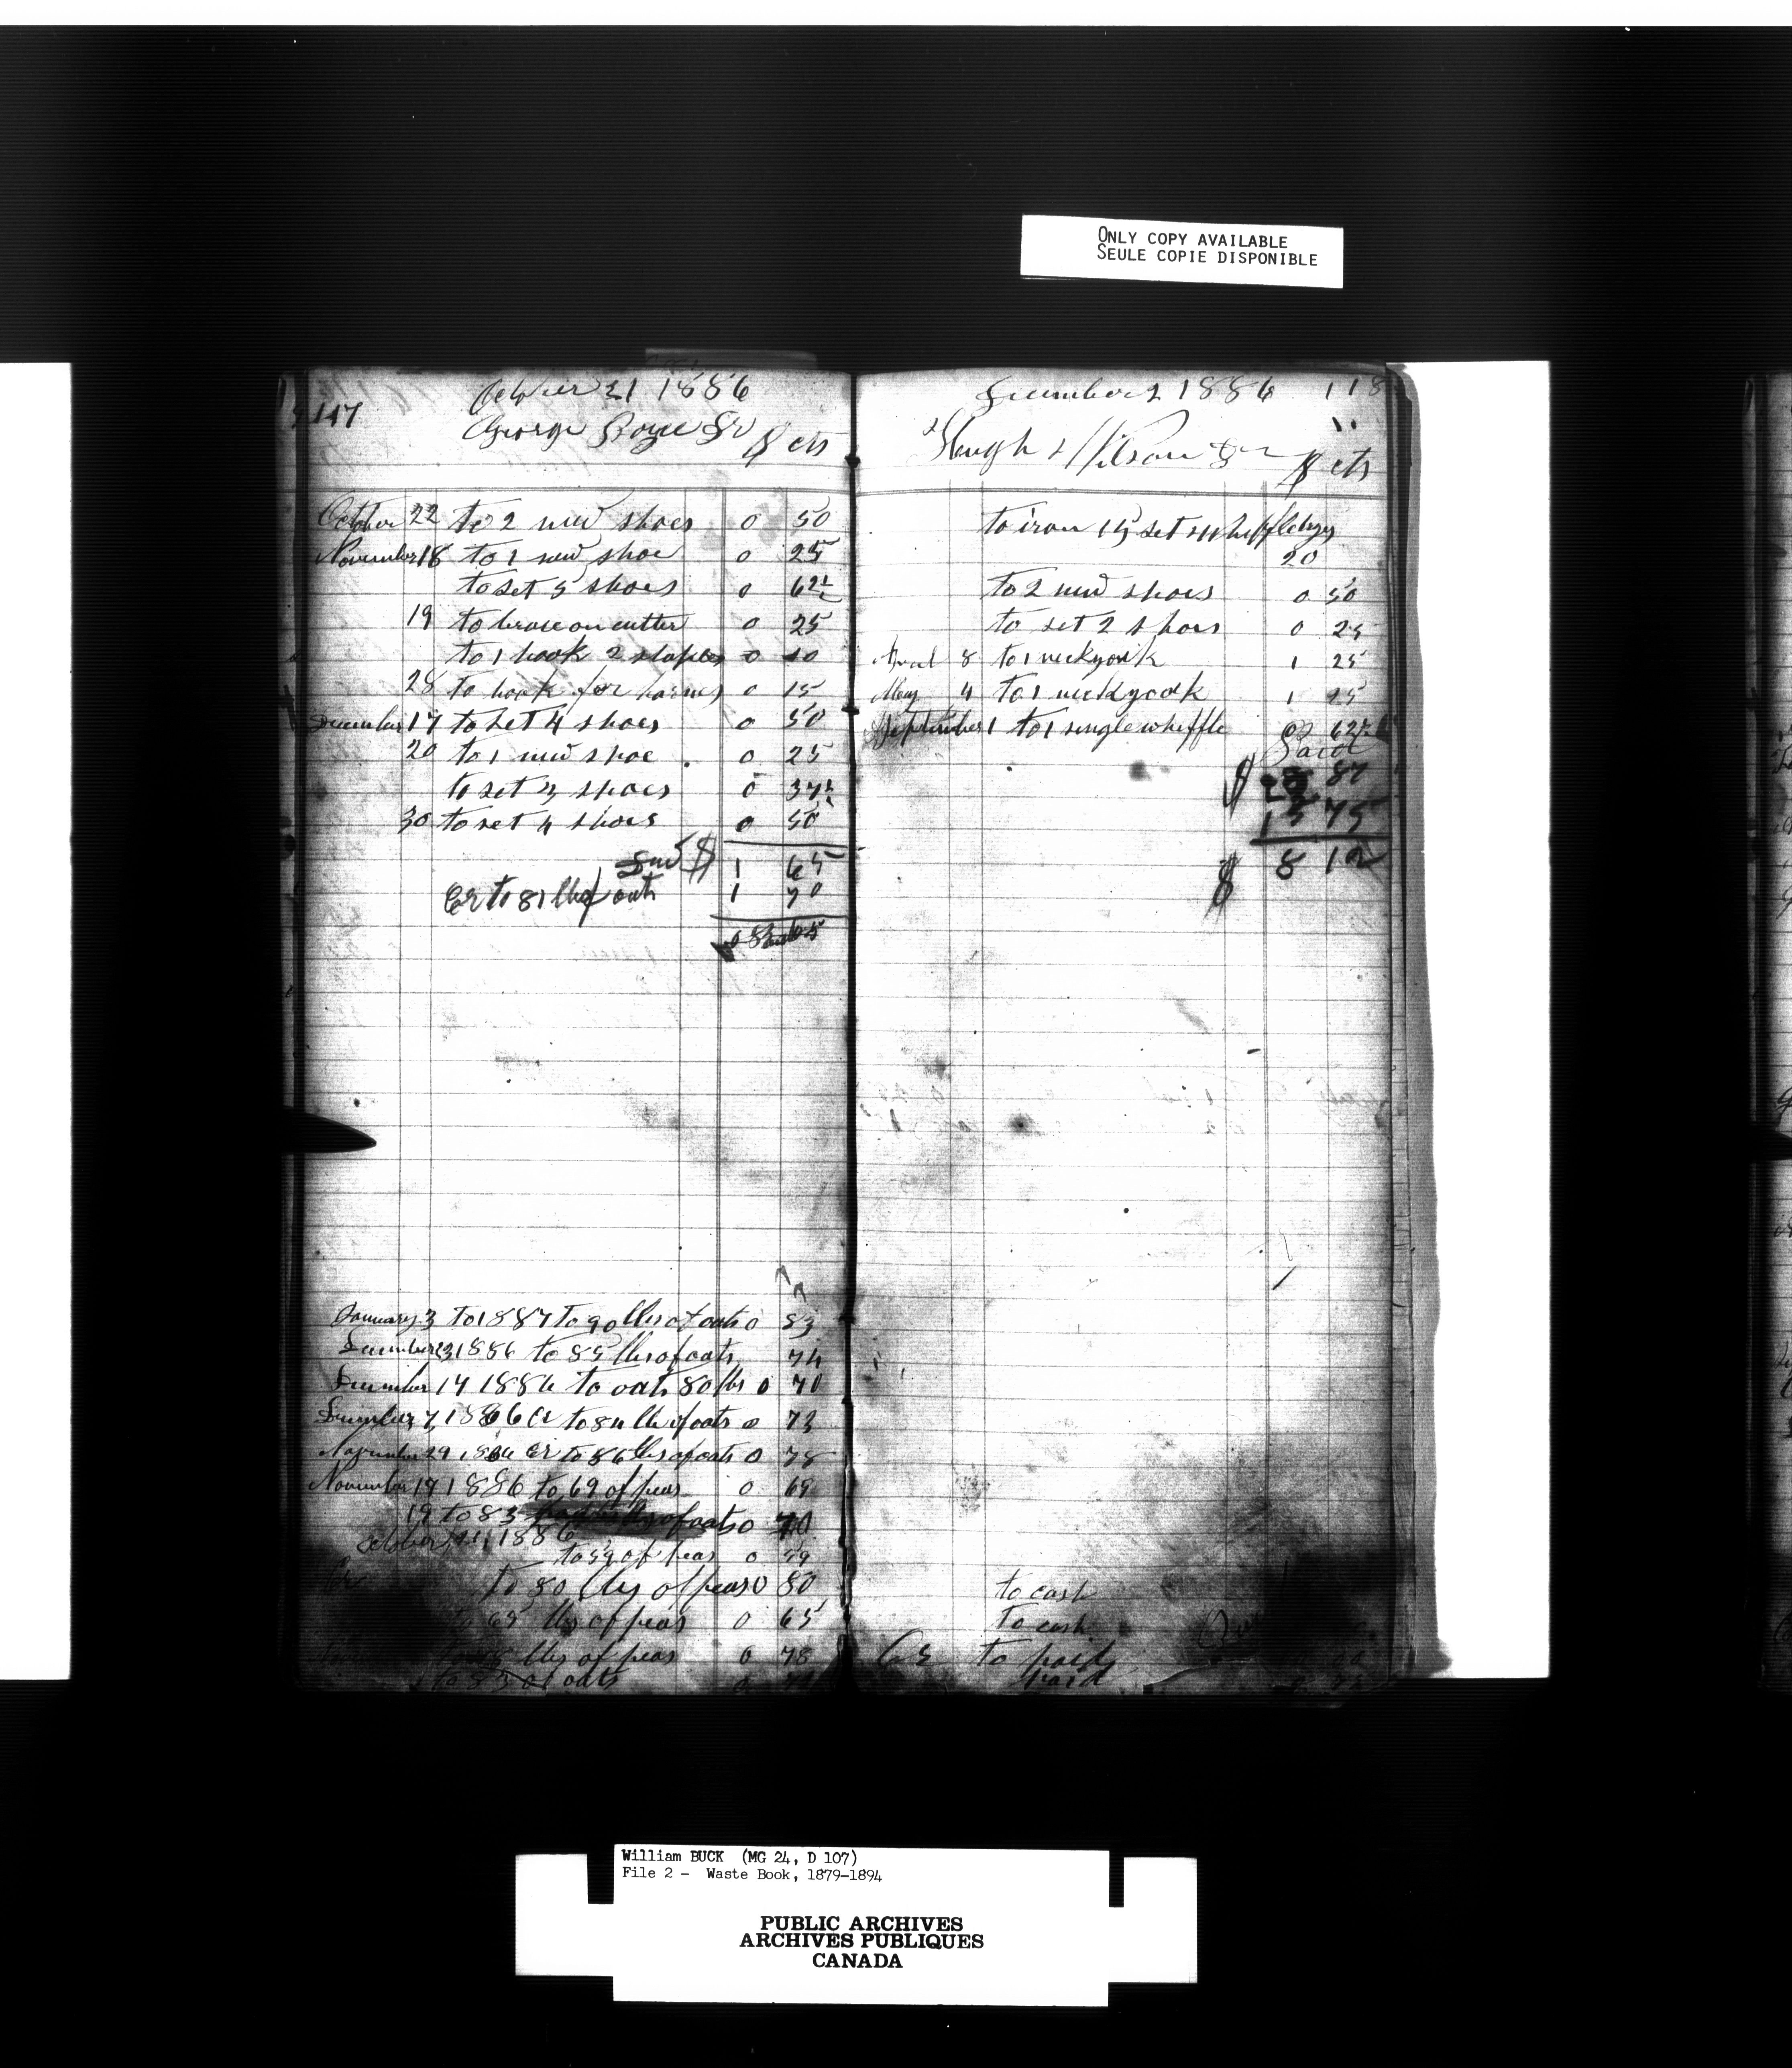 ONLY COPY AVAILABLE
SEULE COPIE DISPONIBLE
October 21 1886
117
George Boyce Dr $ cts
October 22 to 2 new shoes 0 50
November 18 to 1 new shoe 0 25
to set 5 shoes 0 62½
19 to brase on cutter 0 25
to 1 hook 2 staples 0 10
28 to hook for harness 0 15
December 17 to set 4 shoes 0 50
20 to 1 new shoe 0 25
to set 3 shoes 0 37½
30 to set 4 shoes 0 50
Due $ 1 65
Cr to 81 lbs of oats 1 70
January 3 to 1887 to 90 lbs of oats 0 83
December 23 1886 to 85 lbs of oats 74
December 14 1886 to oats 80 lbs 0 70
December 7, 1886 Cr to 84 lbs of oats 0 73
November 29 1886 Cr to 86 lbs of oats 0 75
November 19 1886 to 69 of peas 0 69
19 to 83 lbs of oats 0 70
October, 21, 1886
to 59 of peas 0 59
Cr to 80 lbs of peas 0 80
to 65 lbs of peas 0 65
lbs of peas 0 78
to 83 of oats 0
December 2 1886 118
Hugh Wilson Dr $ cts
to iron 15 set whiffletrys
20
to 2 new shoes 0 50
to set 2 shoes 0 25
April 8 to 1 neckyoak 1 25
May 4 to 1 neckyoak 1 25
September 1 to 1 single whiffle 0 62½
Paid
$ 23 87
15 75
$ 8 12
to cash
to cash
Cr to paid
paid
William BUCK (MG 24, D 107)
File 2 - Waste Book, 1879-1894
PUBLIC ARCHIVES
ARCHIVES PUBLIQUES
CANADA